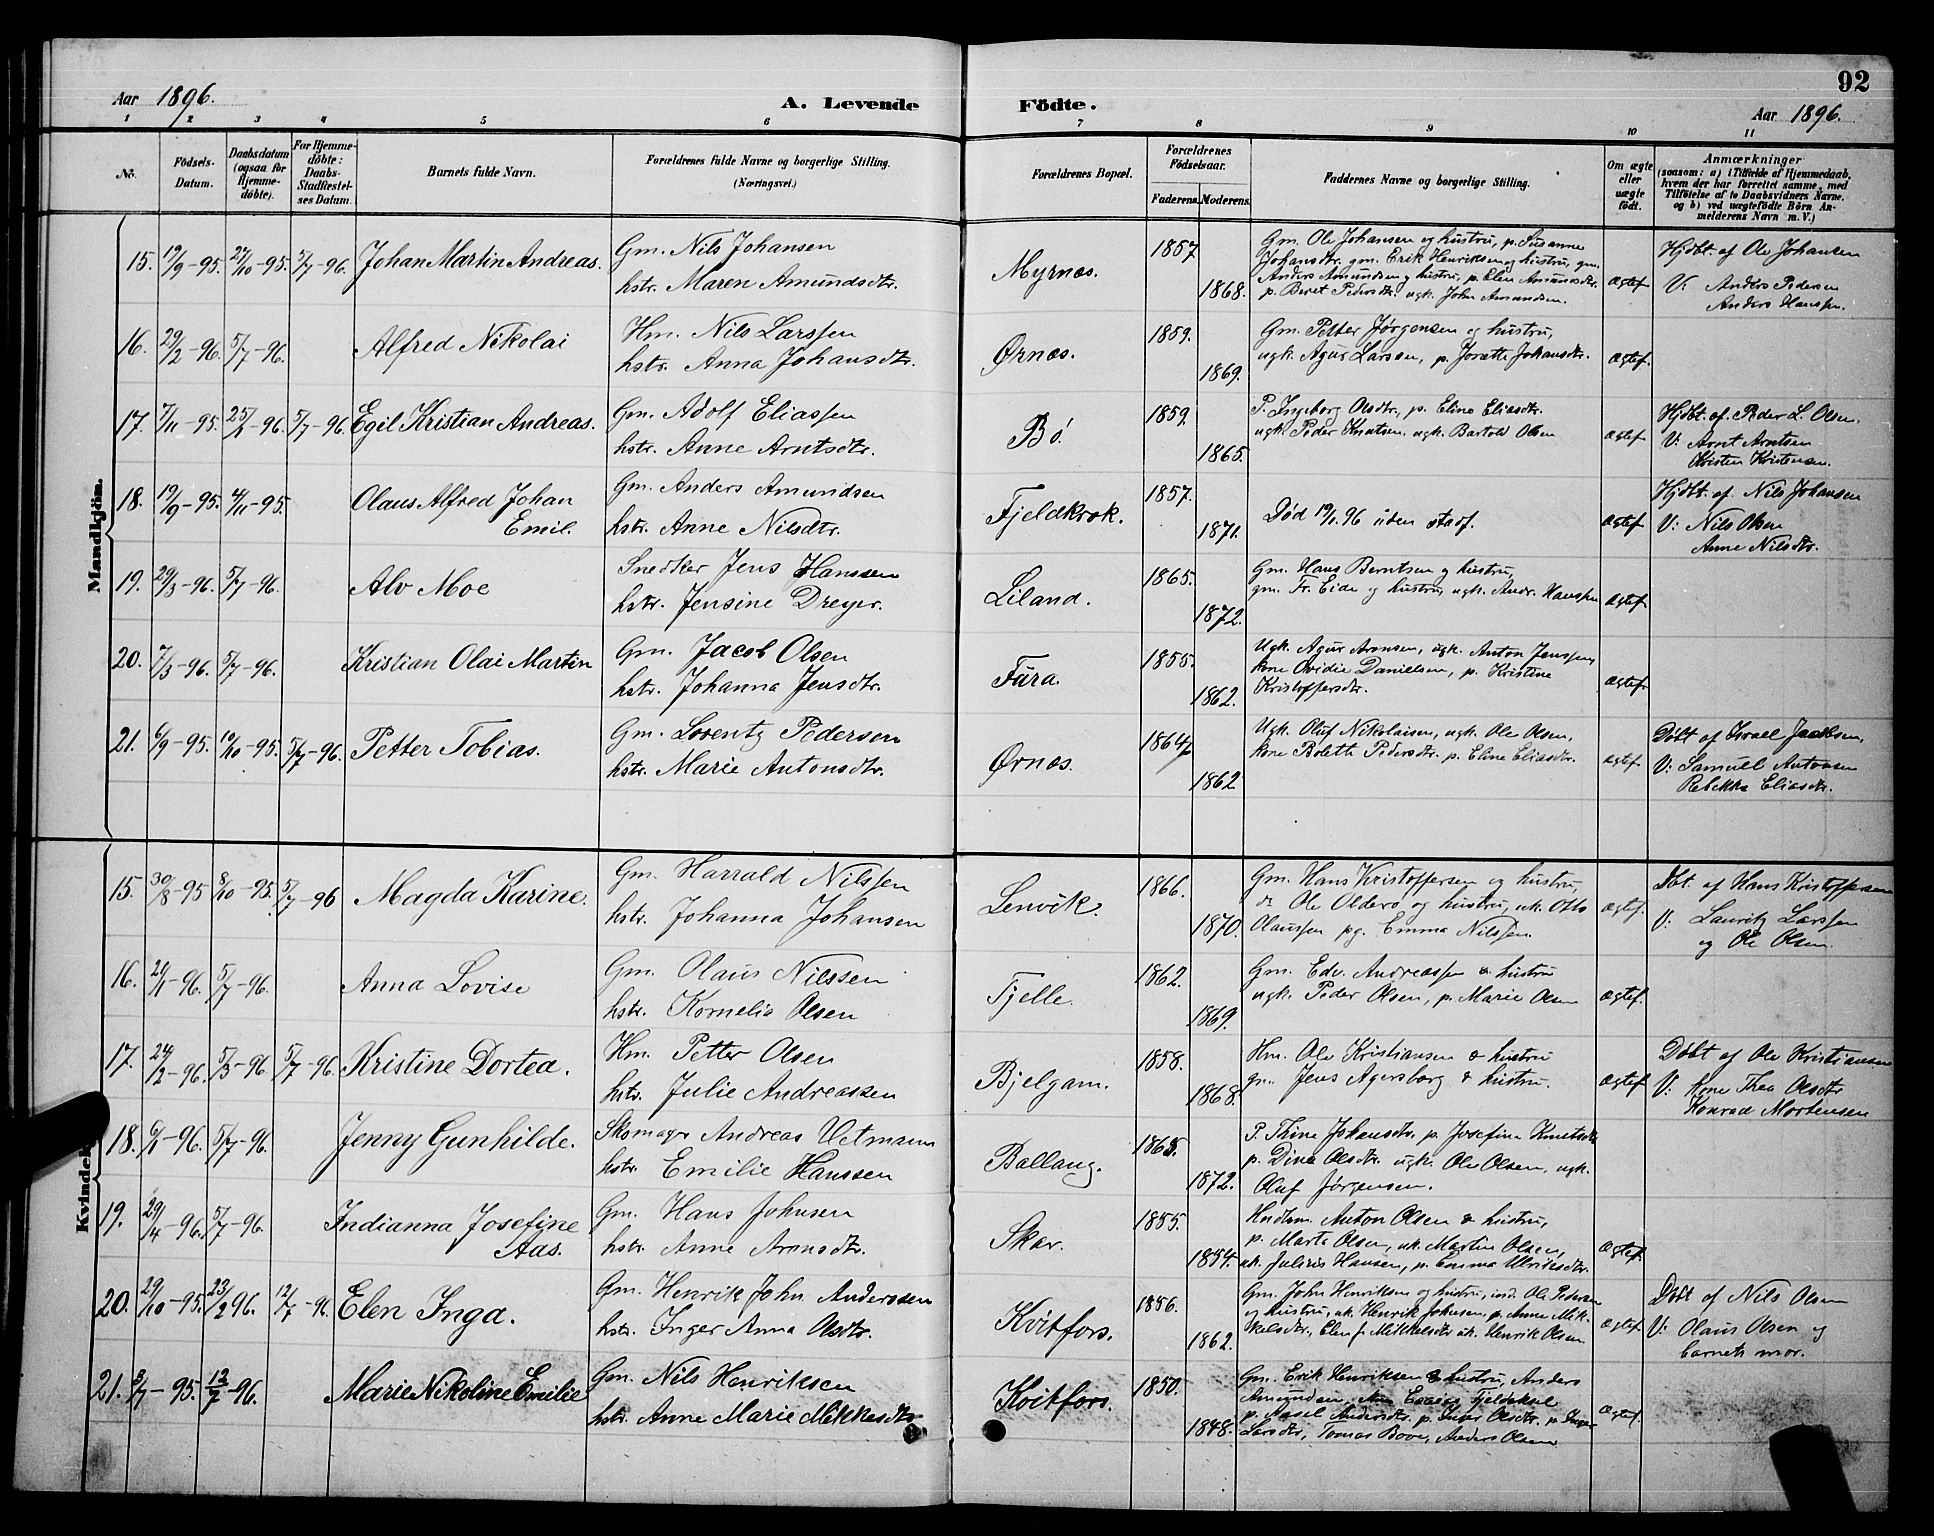 92
Aar 1896. A. Levende Födte. Aar 1896.
1 2 3 4 5 6 7 8 9 10 11
No. Födsels-Datum. Daabsdatum (ogsaa for Hjemmedöbte). For Hjemmedöbte: Daabs-Stadfæstelses Datum. Barnets fulde Navn. Forældrenes fulde Navne og borgerlige Stilling. (Næringsvei.) Forældrenes Bopæl. Forældrenes Födselsaar. Faderens. Moderens. Faddernes Navne og borgerlige Stilling. Om ægte eller uægte födt. Anmærkninger (saasom: a) i Tilfælde af Hjemmedaab, hvem der har forrettet samme, med Tilföielse af to Daabsvidners Navne. og b) ved uægtefödte Börn Anmelderens Navn m. V.)
Mandkjön.
15. 19/9-95. 27/10-95. 5/7-96. Johan Martin Andreas. Gm. Nils Johansen
hstr. Maren Amundsdtr. Myrnæs. 1857 1868. Gm. Ole Johansen og hustru, p. Susanne
Johansdtr. gm. Erik Henriksen og hustru, gm.
Anders Amundsen og hustru, p. Elen Amundsdtr.
p. Beret Pedersdtr. ugk. John Amundsen. Ægtef. Hjdbt. af Ole Johansen
V: Anders Pedersen
Anders Hanssen.
16. 29/2-96. 5/7-96. Alfred Nikolai Hm. Nils Larssen
hstr. Anna Johansdtr. Ørnæs. 1859. 1869. Gm. Petter Jørgensen og hustru,
ugk. Agur Larsen, p. Jorette Johansdtr. Ægtef.
17. 7/11-95. 25/2-96. 5/7-96. Egil Kristian Andreas. Gm. Adolf Eliassen
hstr. Anne Arntsdtr. Bø. 1859. 1865. P. Ingeborg Olsdtr, p. Eline Eliasdtr.
ugk. Peder Knutsen. ugk. Bartold Olsen Ægtef. Hjdbt. af. Peder L. Olsen.
V: Arnt Arntsen
Kristen Kristensen.
18. 19/9-95. 4/11-95. Olaus Alfred Johan
Emil. Gm. Anders Amundsen
hstr. Anne Nilsdtr. Fjeldkrok. 1857. 1871. Død 19/1. 96 uden stadf. Ægtef. Hjdbt. af. Nils Johansen
V: Nils Olsen
Anne Nilsdtr.
19. 29/3-96. 5/7-96. Alv Moe Snedker Jens Hanssen
hstr. Jensine Dreyer. Liland. 1865. 1872. Gm. Hans Berntsen og hustru,
gm. Fr. Eide og hustru, ugk. Andr. Hanssen Ægtef.
20. 7/3-96. 5/7-96. Kristian Olai Martin Gm. Jacob Olsen
hstr. Johanna Jensdtr. Fära. 1855. 1862. Ugk. Agur Aronsen, ugk. Anton Jenssen,
kone Ovidie Danielsen, p. Kristine
Kristoffersdtr. Ægtef.
21. 6/9-95. 19/10-95. 5/7-96. Petter Tobias. Gm. Lorentz Pedersen
hstr. Marie Antonsdtr. Ørnæs. 1864 1862 Ugk. Oluf Nikolaisen, ugk. Ole Olsen,
kone Boleth Pedersdtr. p. Eline Eliasdtr. Ægtef. Døbt af Israel Jacobsen,
V: Samuel Antonsen
Rebekka Eliasdtr.
Kvindek
15. 30/8-95 8/10-95. 5/7-96 Magda Karine. Gm. Harrald Nilssen
hstr. Johanna Johansen Lenvik. 1866. 1870. Gm. Hans Kristoffersen og hustru,
Ole Olderø og hustru, uk. Otto
Olaussen pg. Emma Nilssen. Ægtef. Dbt. af Hans Kristoffersen
V: Lauritz Larssen
og Ole Olsen.
16. 29/1-96. 5/7-96. Anna Lovise Gm. Olaus Nilssen
hstr. Kornelia Olsen Fjelle. 1862. 1869. Gm. Edv. Andreassen & hustru
ugk. Peder Olsen, p. Marie Olsen Ægtef.
17. 24/2-96. 5/3-96 5/7-96. Kristine Dortea. Hm. Petter Olsen
hstr. Julie Andreassen Bjelgam. 1858. 1868. Hm. Ole Kristiansen & hustru
gm. Jens Agersborg & hustru. Ægtef. Døbt af Ole Kristiansen
V: kone Thea Olsdtr
Konrad Mortensen
18. 6/1-96. 5/7-96. Jenny Gunhilde. Skomager Andreas Uetmann
hstr. Emilie Hanssen Ballang. 1865. 1872. P. Thina Johansdtr. p. Josefina Knutsdtr
p. Dina Olsdtr. ugk. Ole Olsen, ugk.
Oluf Jørgensen.
19. 29/4-96. 5/7-96. Indianna Josefine
Aas. Gm. Hans Johnsen
hstr. Anne Aronsdtr. Skar. 1855. 1854. Anton Olsen & hustru,
p. Marta Olsen, uk. Martin Olsen,
uk. Julius Hansen, p. Emma Ulriksdtr. Ægtef.
20. 29/10-95. 23/2 96. 12/7-96. Elen Inga. Gm. Henrik John Anderssen
hstr. Inger Anna Olsdtr. Kvitfors. 1856. 1862. Gm. John Henriksen og hustru, ind. Ole Pedersen
og hustru, uk. Henrik Johnsen, p. Anne Mik-
kelsdtr, Elen J. Mikkelsdtr uk. Henrik Olsen Ægtef. Døbt af Nils Olsen
V: Olaus Olsen og
barnets mor.
21. 8/7-95. 12/7-96. Marie Nikoline Emilie Gm. Nils Henriksen
hstr. Anne Marie Mikkelsdtr Kvitfors. 1850. 1848. Gm. Erik Henriksen & hustru, Anders
Amundsen, Fjeldskal
p. Aasel Andersdtr. p. Inger Olsdtr, p. Inger
Larsdtr, Tomas Bove, Anders Olsen Ægtef.